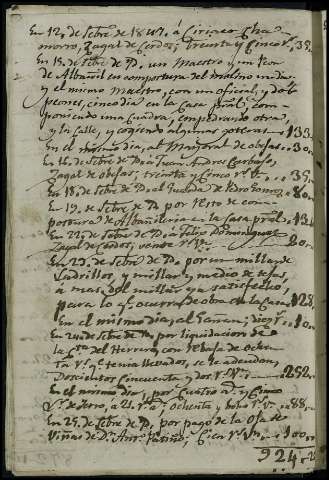 En 12, de Sebre de 1847. á Ciriaco Cha-
morro, Zagal de Cerdos; treinta y Cinco r.ˢ 35.
En 13. de Sebre de D. un Maestro y un Peon
de Albañil en compostura del molino
y el mismo Maestro, con un oficial, y dos
peones, cinco dia en la Casa pral; com-
poniendo una Cuadra, empedrando otra,
y la Calle, y cogiendo algunas goteras 133.
En el mismo dia, al Mayoral de obejas 30.
En 16. de Sebre de D. a Juan Andres Carbajo,
Zagal de obejas; treinta y Cinco r.ˢ 35.
En 18. de Sebre de D. al Guarda de 80.
En 19. de Sebre de D. por resto de com-
postura de Albañileria en la Casa pral 121
En 22. de Sebre de D. a Felipe Dominguez
Zagal de cerdos; veinte r.ˢ 20.
En 23. de Sebre de D. por un millar de
Ladrillos, y millar y medio de tejas,
á mas del millar ya satisfecho,
para lo q.ᵉ ocurra de obra en la Casa 128
En el mismo dia, al Garran; diez r.ˢ 10.
En 24. de Sebre de D. por liquidacion de
la C.ᵗᵃ del Herrero, con rebaja de ochen-
ta r.ˢ q.ᵉ tenia llevados, se le adeudan,
Doscientos Cincuenta y dos r.ˢ 252.
En el mismo dia, por Cuatro a.ˢ y Cinco
, á 21. r.ˢ a; ochenta y ocho r.ˢ 88.
En 25. de Sebre de D. por pago de la oja de
Viñas de D.ⁿ Ant.º Patiño; Cien r.ˢ 100.
924